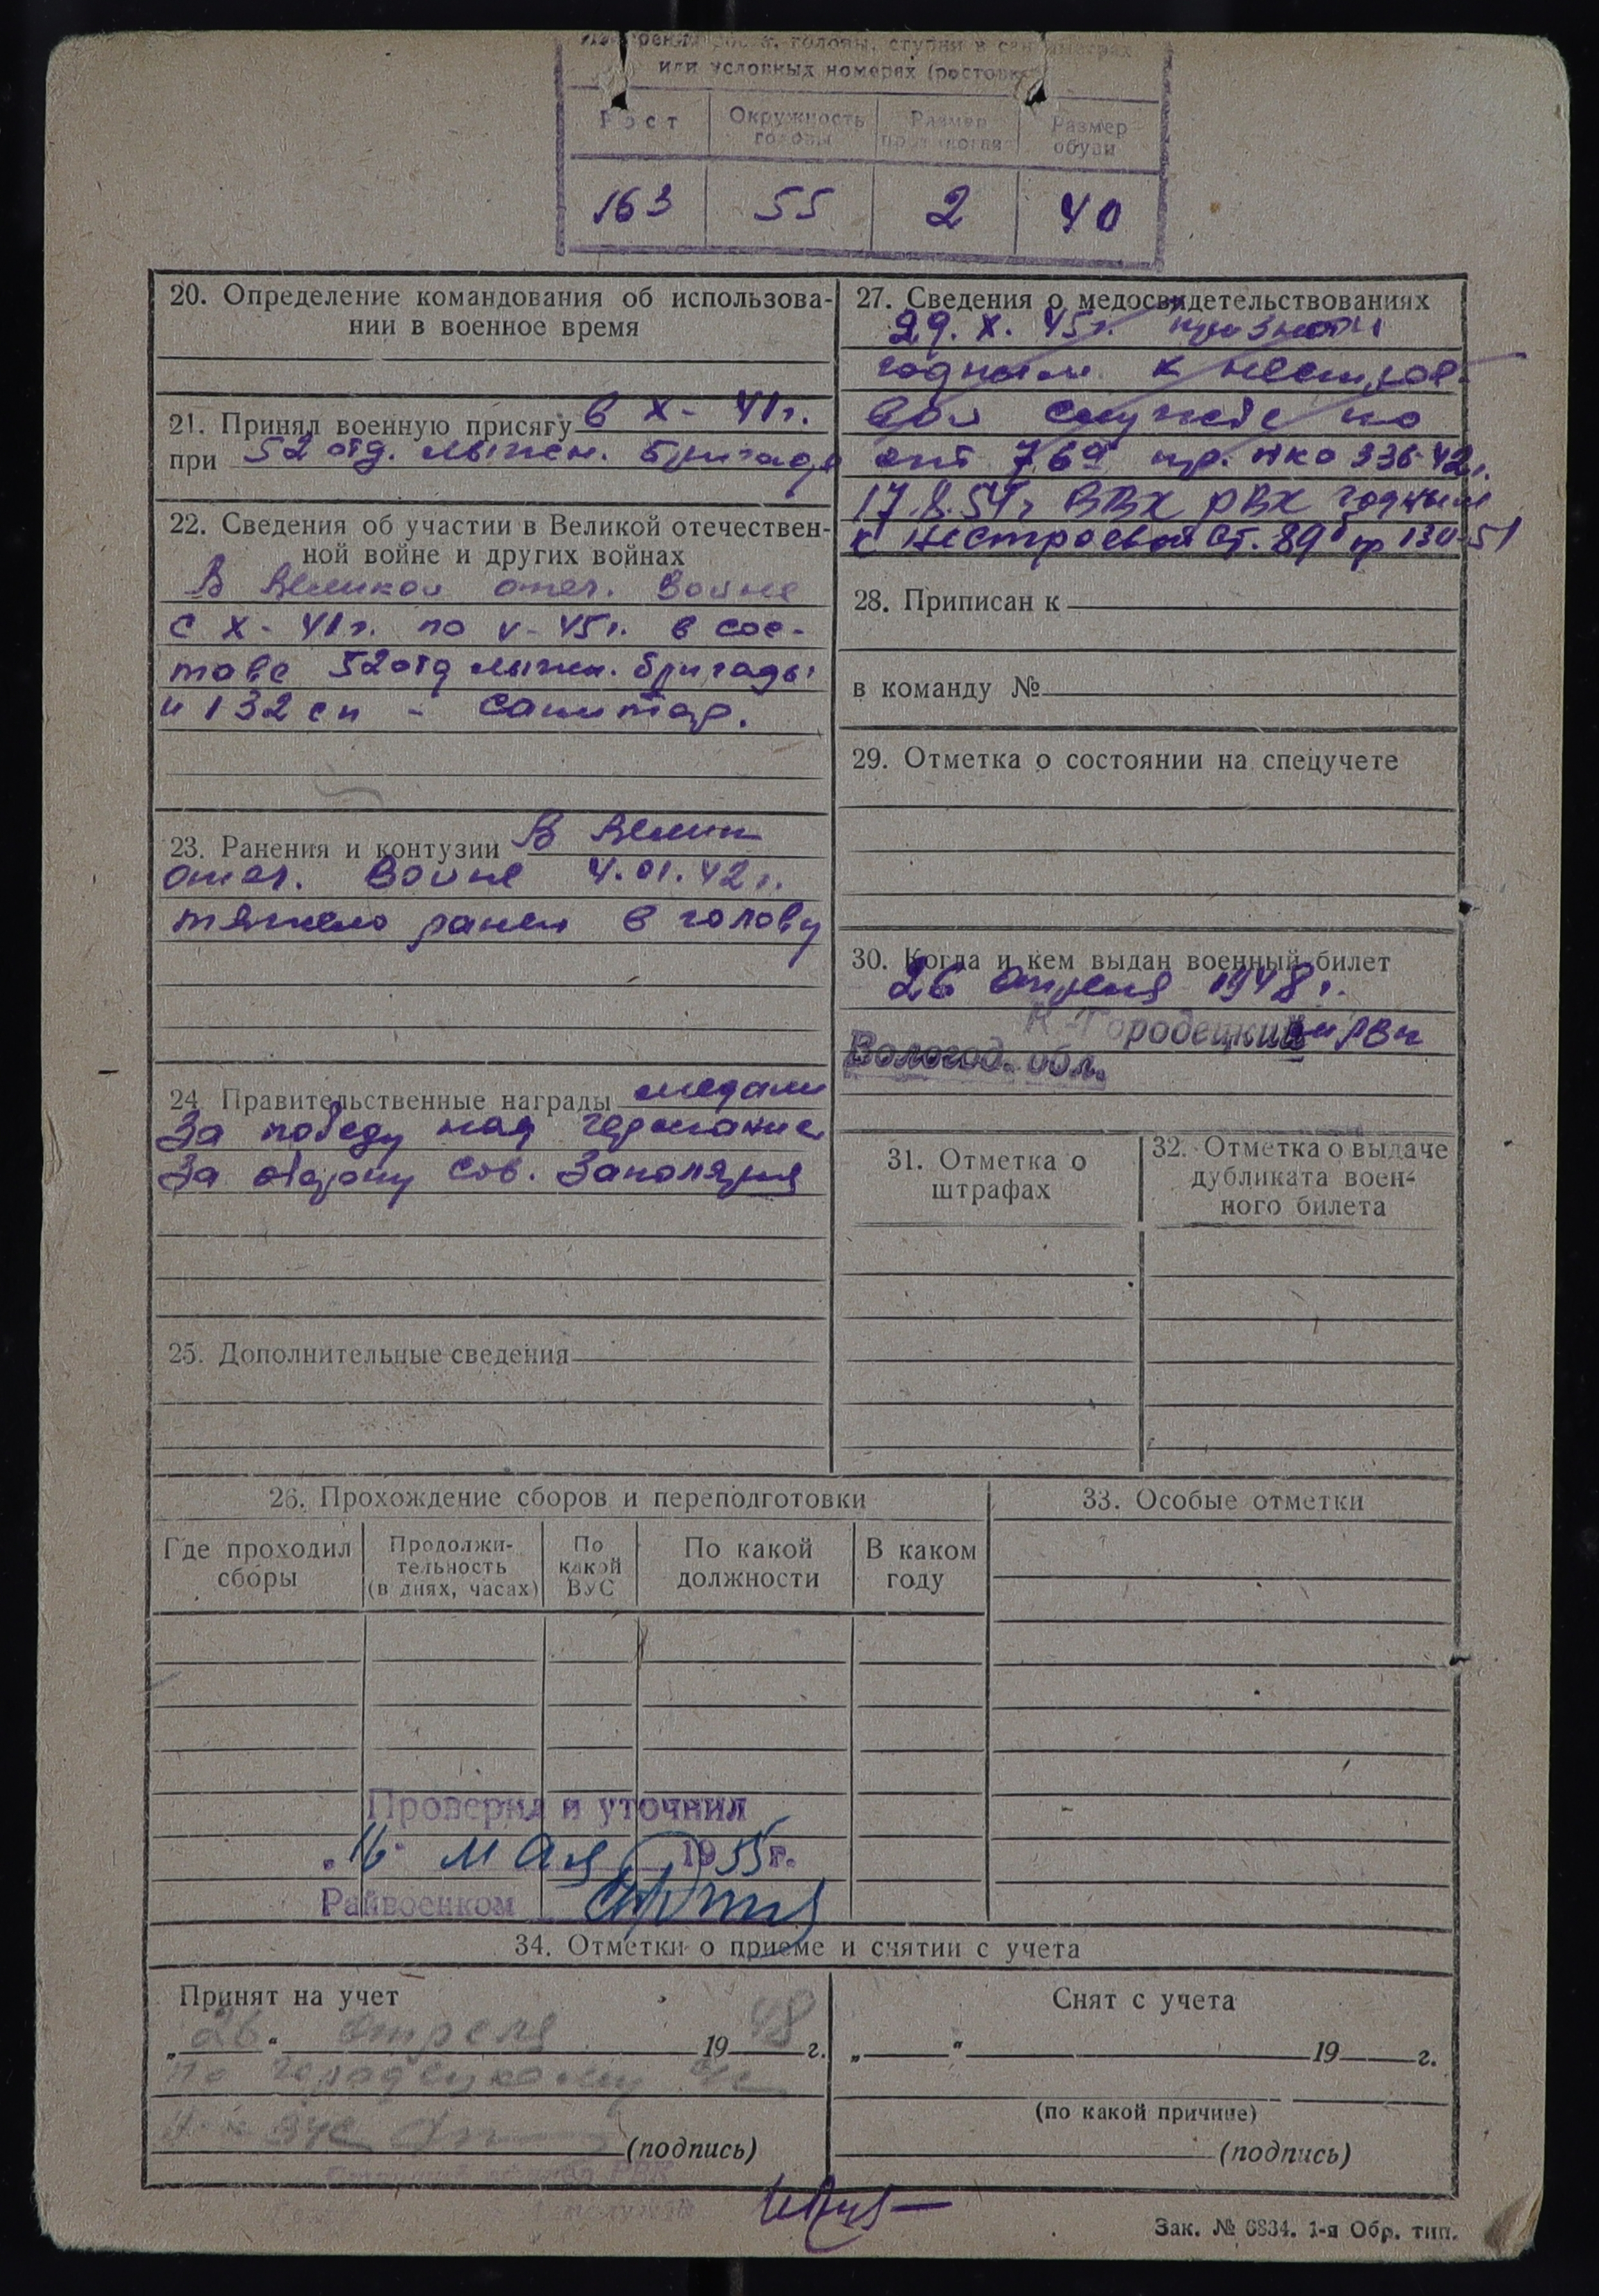 головы, ступни в сантиметрах
или условных номерах (ростовка)
Рост Окружность головы Размер противогаза Размер обуви
163 55 2 40
20. Определение командования об использова-
нии в военное время
21. Принял военную присягу в X - 41г.
при 52 отд. лыжн. бригаде
22. Сведения об участии в Великой отечествен-
ной войне и других войнах
В Великой отеч. Войне
с X - 41г. по V - 45г. в сос-
таве 52 отд лыжн. бригады
и 132 сп - санитар.
23. Ранения и контузии В Велик
отеч. Войне 4.01.42г.
тяжело ранен в голову
24. Правительственные награды медали
За победу над Германией
За оборону Сов. Заполярья
25. Дополнительные сведения
27. Сведения о медосвидетельствованиях
29. X. 45г. признан
годным к нестрое-
вой службе по
ст 76а пр. НКО 336-42г.
17.8.54г ВВК РВК годным
к нестроевой ст. 89б пр 130-51
28. Приписан к
в команду №
29. Отметка о состоянии на спецучете
30. Когда и кем выдан военный билет
26 апреля 1948г.
К-Городецким РВК
Вологод. обл.
31. Отметка о
штрафах
32. Отметка о выдаче
дубликата воен-
ного билета
26. Прохождение сборов и переподготовки
Где проходил
сборы
Продолжи-
тельность
(в днях, часах)
По
какой
ВУС
По какой
должности
В каком
году
33. Особые отметки
Проверил и уточнил
„16" мая 1955г.
Райвоенком
34. Отметки о приеме и снятии с учета
Принят на учет
„26“ апреля 1948 г.
по Городецкому
(подпись)
Снят с учета
„ “ 19 г.
(по какой причине)
(подпись)
Зак. № 6834. 1-я Обр. тип.